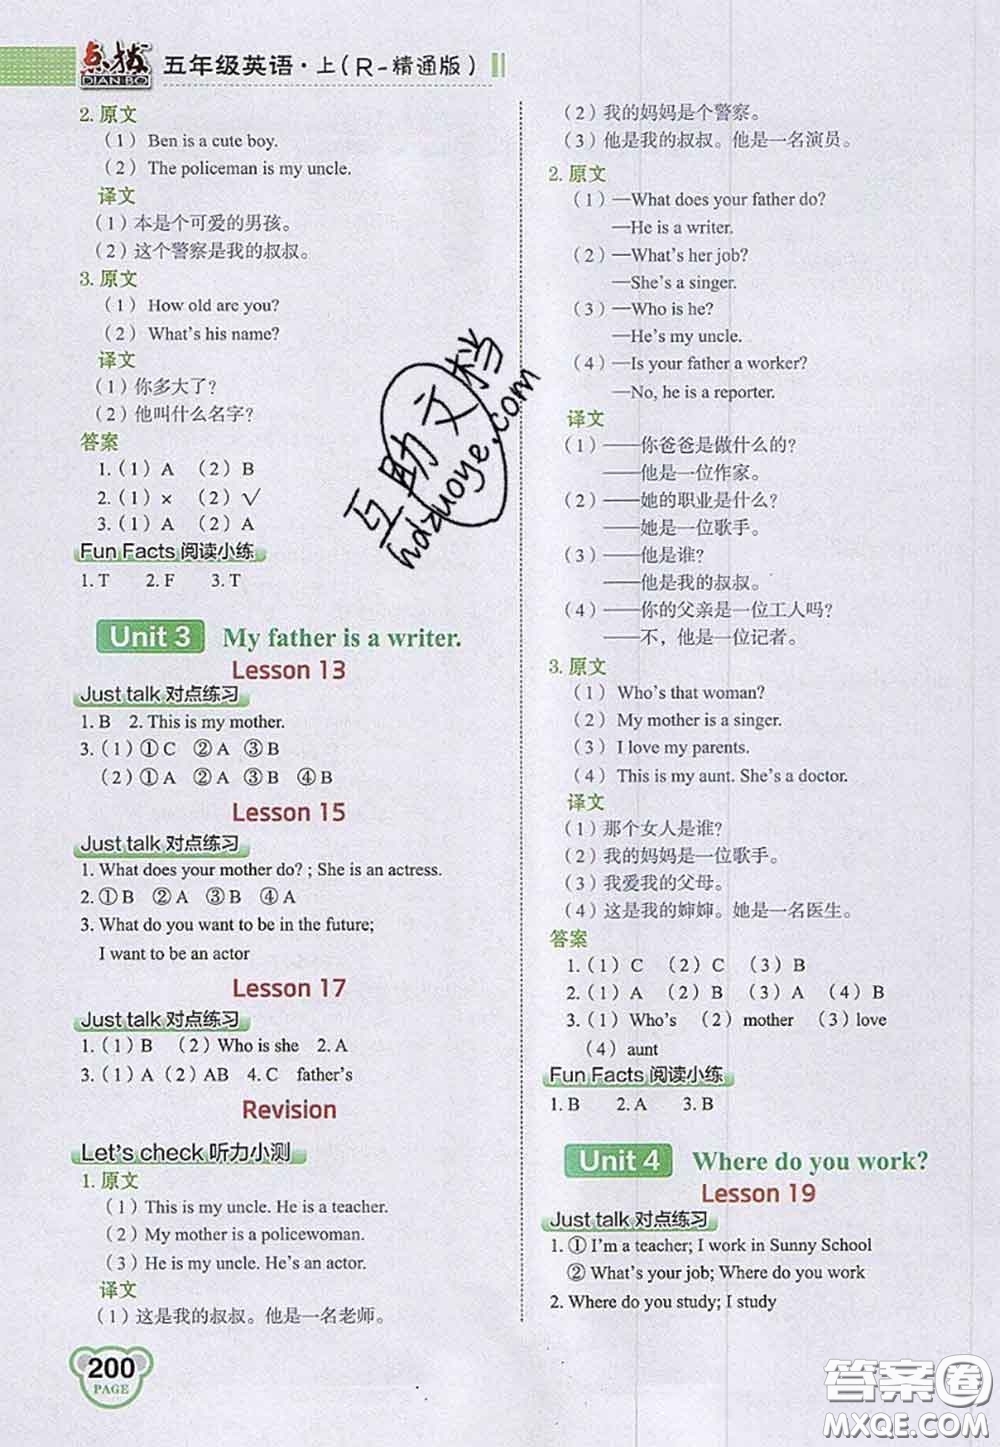 点拨
DIAN BO
五年级英语·上(R-精通版)
2. 原文
(1) Ben is a cute boy.
(2) The policeman is my uncle.
译文
(1)本是个可爱的男孩。
(2)这个警察是我的叔叔。
3. 原文
(1) How old are you?
(2) What's his name?
译文
(1)你多大了?
(2)他叫什么名字?
答案
1.(1)A (2)B
2.(1)× (2)√
3.(1)A (2)A
Fun Facts 阅读小练
1. T 2. F 3. T
Unit 3 My father is a writer.
Lesson 13
Just talk 对点练习
1. B 2. This is my mother.
3.(1)①C ②A ③B
(2)①A ②A ③B ④B
Lesson 15
Just talk 对点练习
1. What does your mother do? ; She is an actress.
2. ①B ②A ③B ④A
3. What do you want to be in the future;
I want to be an actor
Lesson 17
Just talk 对点练习
1.(1)B (2)Who is she 2. A
3.(1)A(2)AB 4. C father's
Revision
Let's check 听力小测
1. 原文
(1) This is my uncle. He is a teacher.
(2) My mother is a policewoman.
(3) He is my uncle. He's an actor.
译文
(1)这是我的叔叔。他是一名老师。
200
PAGE
(2)我的妈妈是个警察。
(3)他是我的叔叔。他是一名演员。
2. 原文
(1)—What does your father do?
—He is a writer.
(2)—What's her job?
—She's a singer.
(3)—Who is he?
—He's my uncle.
(4)—Is your father a worker?
—No, he is a reporter.
译文
(1)——你爸爸是做什么的?
——他是一位作家。
(2)——她的职业是什么?
——她是一位歌手。
(3)——他是谁?
——他是我的叔叔。
(4)——你的父亲是一位工人吗?
——不，他是一位记者。
3. 原文
(1) Who's that woman?
(2) My mother is a singer.
(3) I love my parents.
(4) This is my aunt. She's a doctor.
译文
(1)那个女人是谁?
(2)我的妈妈是一位歌手。
(3)我爱我的父母。
(4)这是我的婶婶。她是一名医生。
答案
1.(1)C (2)C (3)B
2.(1)A (2)B (3)A (4)B
3.(1)Who's (2)mother (3)love
(4)aunt
Fun Facts 阅读小练
1. B 2. A 3. B
Unit 4 Where do you work?
Lesson 19
Just talk 对点练习
1. ① I'm a teacher; I work in Sunny School
② What's your job; Where do you work
2. Where do you study; I study
互助文档
hdzuoye.com
答案圈
MXQE.COM